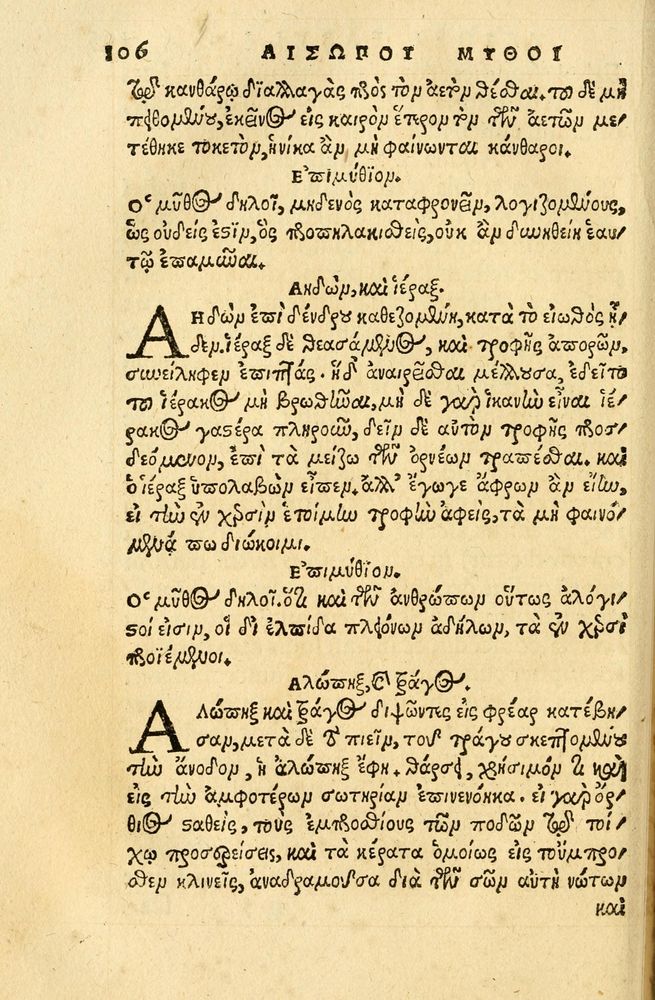 106 ΑΙΣΩΠΟΥ ΜΥΘΟΙ
τῷ κανθάρῳ διαλλαγὰς πρὸς τὸν ἀετὸν θέσθαι. τοῦ δὲ μὴ
πειθομένου, ἐκεῖνος εἰς καιρὸν ἕτερον τὸν τῶν ἀετῶν με/
τέθηκε τοκετὸν, ἡνίκα ἂν μὴ φαίνωνται κάνθαροι.
Επιμύθιον.
Ο μῦθος δηλοῖ, μηδενὸς καταφρονεῖν, λογιζομένους,
ὡς οὐδείς ἐστιν, ὃς προπηλακισθεὶς, οὐκ ἂν δυνηθείη ἑαυ/
τῷ ἐπαμῦναι.
Αηδὼν, καὶ ἱέραξ.
ΑΗδὼν ἐπὶ δένδρου καθεζομένη, κατὰ τὸ εἰωθὸς ᾖ/
δεν. ἱέραξ δὲ θεασάμενος, καὶ τροφῆς ἀπορῶν,
συνείληφεν ἐπιπτάς. ἡ δ' ἀναιρεῖσθαι μέλλουσα, ἐδεῖτο
τοῦ ἱέρακος μὴ βρωθῆναι, μὴ δὲ γὰρ ἱκανὴν εἶναι ἱέ/
ρακος γαστέρα πληροῦν, δεῖν δὲ αὐτὸν τροφῆς προσ/
δεόμενον, ἐπὶ τὰ μείζω τῶν ὀρνέων τραπέσθαι. καὶ
ὁ ἱέραξ ὑπολαβὼν εἶπεν. ἀλλ' ἔγωγε ἄφρων ἂν εἴην,
εἰ τὴν ἐν χερσὶν ἑτοίμην τροφὴν ἀφεὶς, τὰ μὴ φαινό/
μενά πω διώκοιμι.
Επιμύθιον.
Ο μῦθος δηλοῖ. ὅτι καὶ τῶν ἀνθρώπων οὕτως ἀλόγι/
στοί εἰσιν, οἳ δι' ἐλπίδα πλειόνων ἀδήλων, τὰ ἐν χερσὶ
προϊέμενοι.
Αλώπηξ, καὶ τράγος.
ΑΛώπηξ καὶ τράγος διψῶντες εἰς φρέαρ κατέβη/
σαν, μετὰ δὲ τὸ πιεῖν, τοῦ τράγου σκεπτομένου
τὴν ἄνοδον, ἡ ἀλώπηξ ἔφη. θάρσει, χρήσιμόν τι καὶ
εἰς τὴν ἀμφοτέρων σωτηρίαν ἐπινενόηκα. εἰ γὰρ ὄρ/
θιος σταθεὶς, τοὺς ἐμπροσθίους τῶν ποδῶν τῷ τοί/
χῳ προσερείσεις, καὶ τὰ κέρατα ὁμοίως εἰς τοὔμπρο/
σθεν κλινεῖς, ἀναδραμοῦσα διὰ τῶν σῶν αὐτὴ νώτων
καὶ